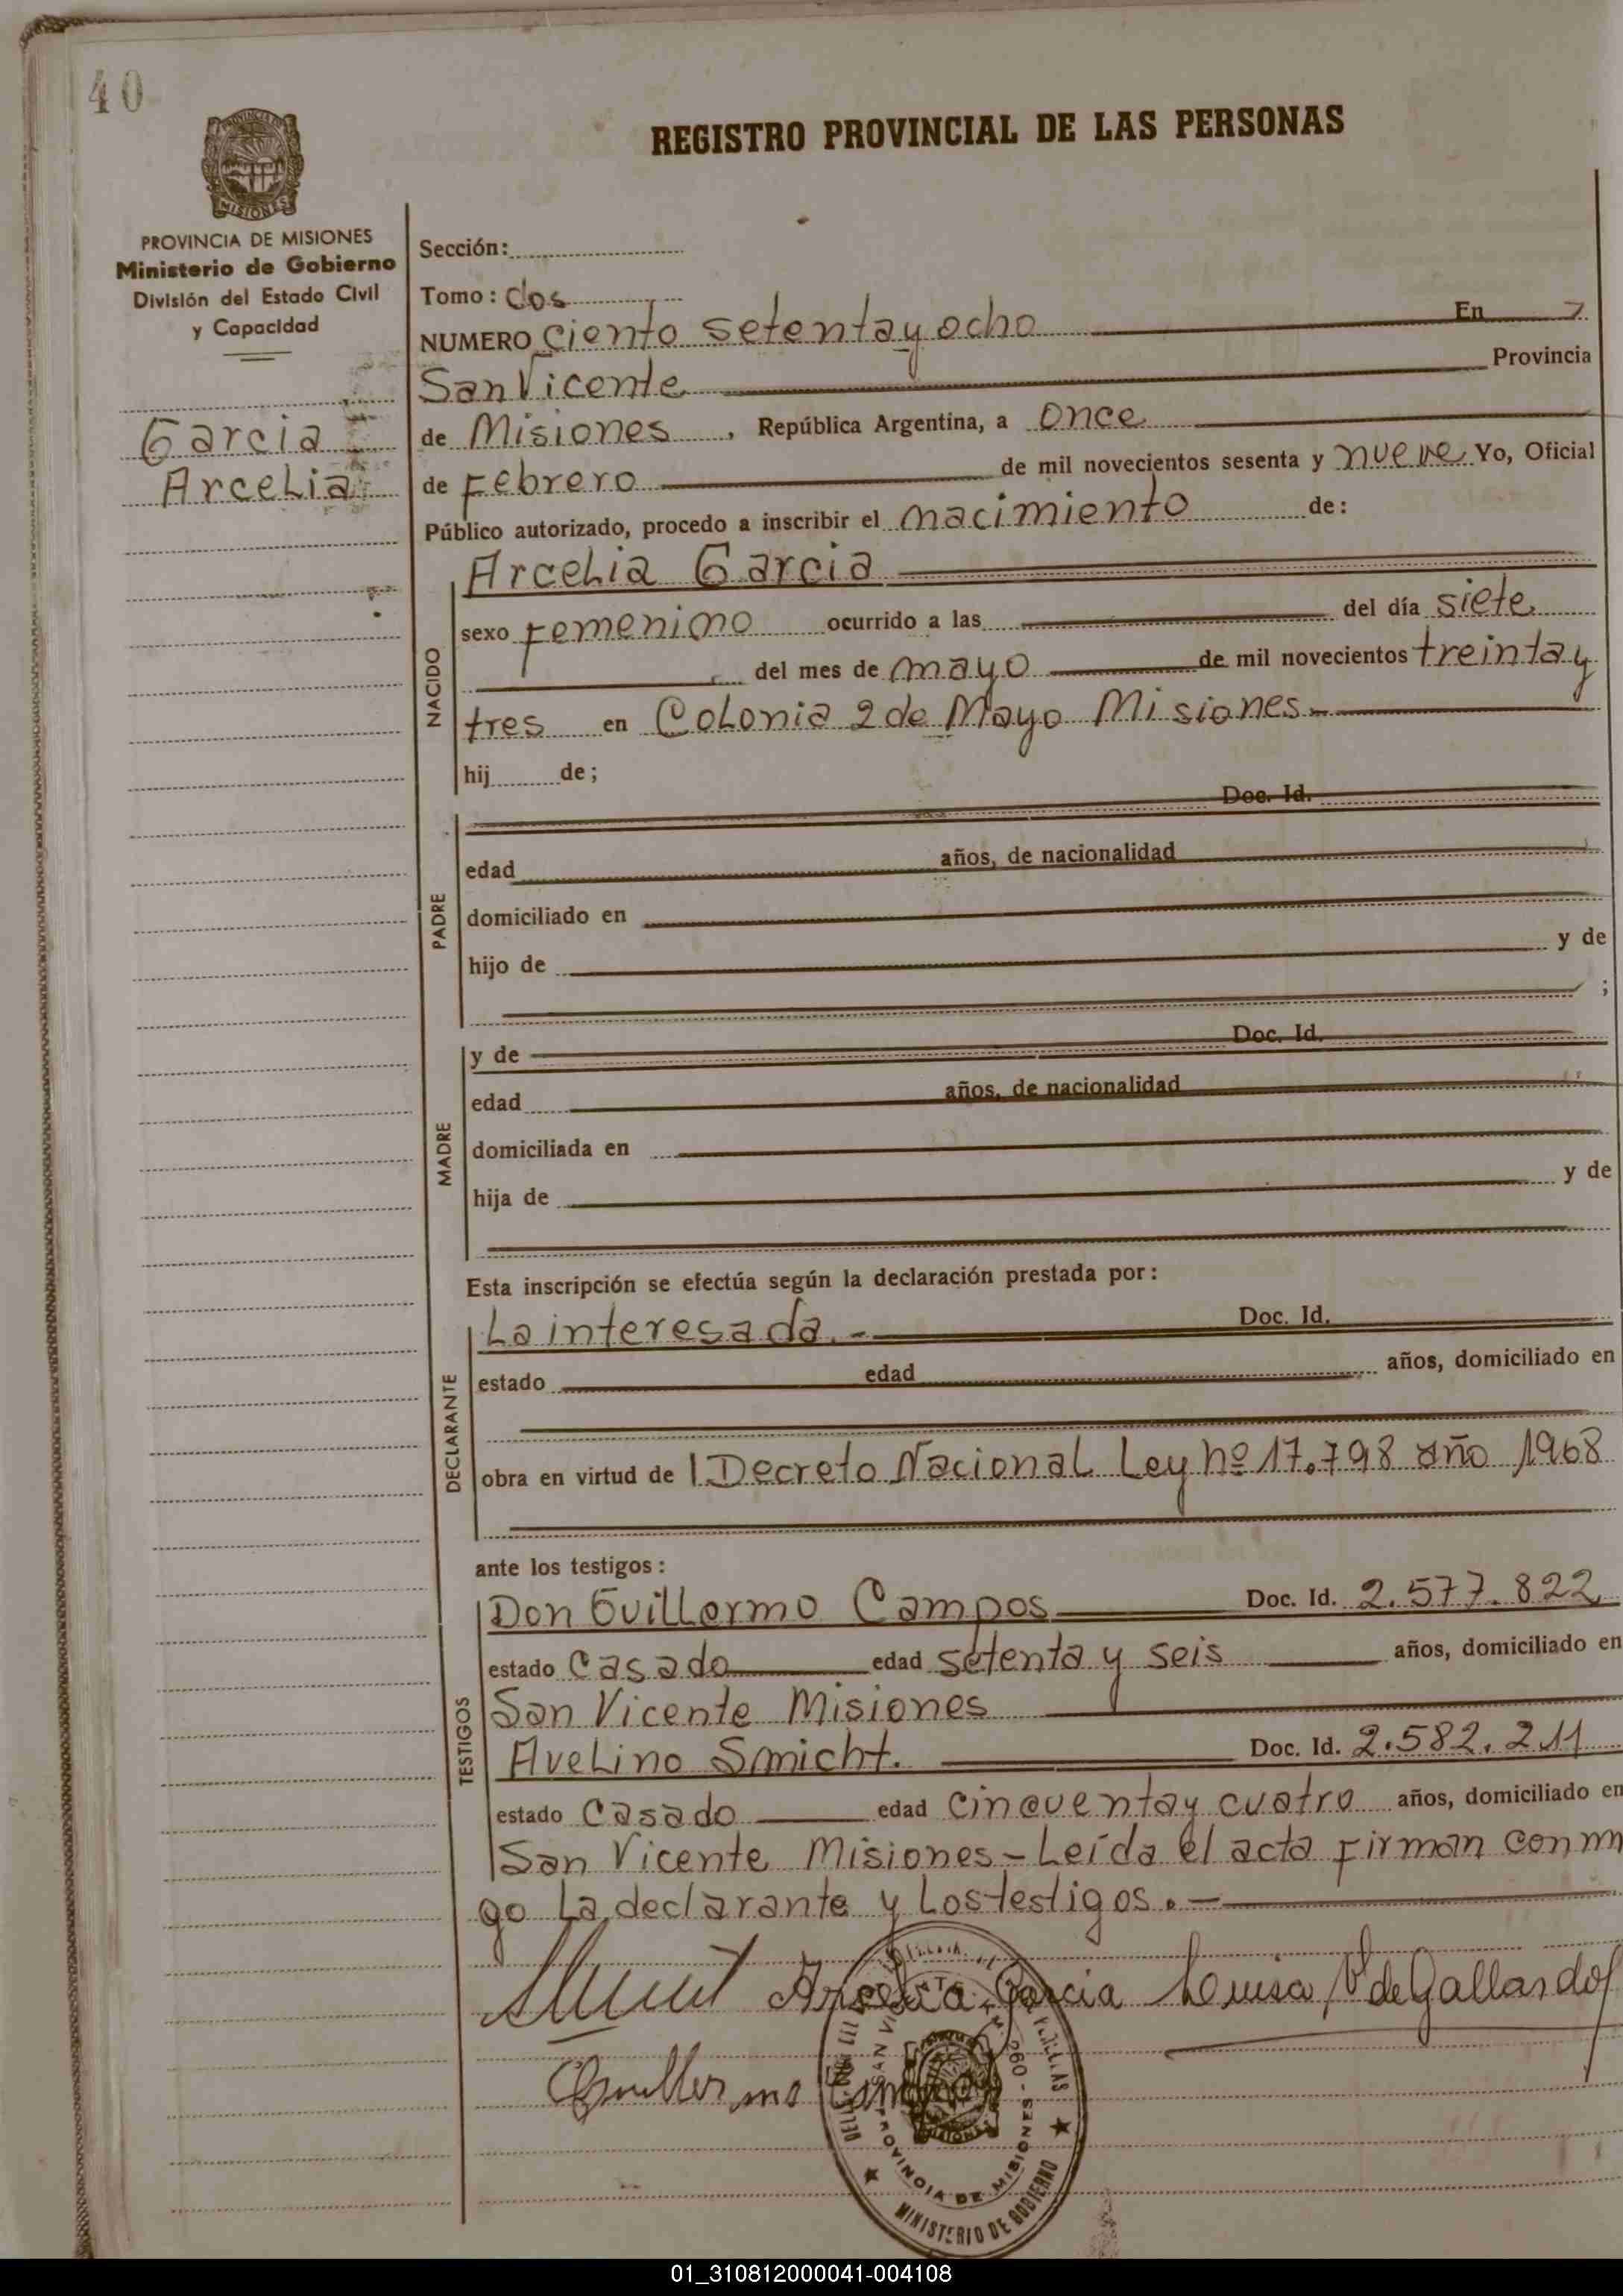 40
REGISTRO PROVINCIAL DE LAS PERSONAS
MISIONES
PROVINCIA DE MISIONES
Ministerio de Gobierno
División del Estado Civil
y Capacidad
Garcia
Arcelia
Sección:
Tomo: dos
NUMERO ciento setenta y ocho En
San Vicente Provincia
de Misiones, República Argentina, a once
de Febrero de mil novecientos sesenta y nueve Yo, Oficial
Público autorizado, procedo a inscribir el nacimiento de:
NACIDO
Arcelia Garcia
sexo Femenino ocurrido a las del día siete
del mes de mayo de mil novecientos treinta y
tres en Colonia 2 de Mayo Misiones.-
hij de;
PADRE
Doc. Id.
edad años, de nacionalidad
domiciliado en
hijo de y de
;
MADRE
y de Doc. Id.
edad años, de nacionalidad
domiciliada en
hija de y de
Esta inscripción se efectúa según la declaración prestada por:
DECLARANTE
La interesada.- Doc. Id.
estado edad años, domiciliado en
obra en virtud de l Decreto Nacional Ley nº 17.798 año 1968
ante los testigos:
TESTIGOS
Don Guillermo Campos Doc. Id. 2.577.822
estado Casado edad setenta y seis años, domiciliado en
San Vicente Misiones
Avelino Smicht. Doc. Id. 2.582.211
estado Casado edad cincuenta y cuatro años, domiciliado en
San Vicente Misiones - Leída el acta Firman conmi
go La declarante y Los testigos.-
Arcelia Garcia Luisa V de Gallardo
Guillermo Campos
SAN VICENTE
PROVINCIA DE MISIONES
MINISTERIO DE GOBIERNO
01_310812000041-004108